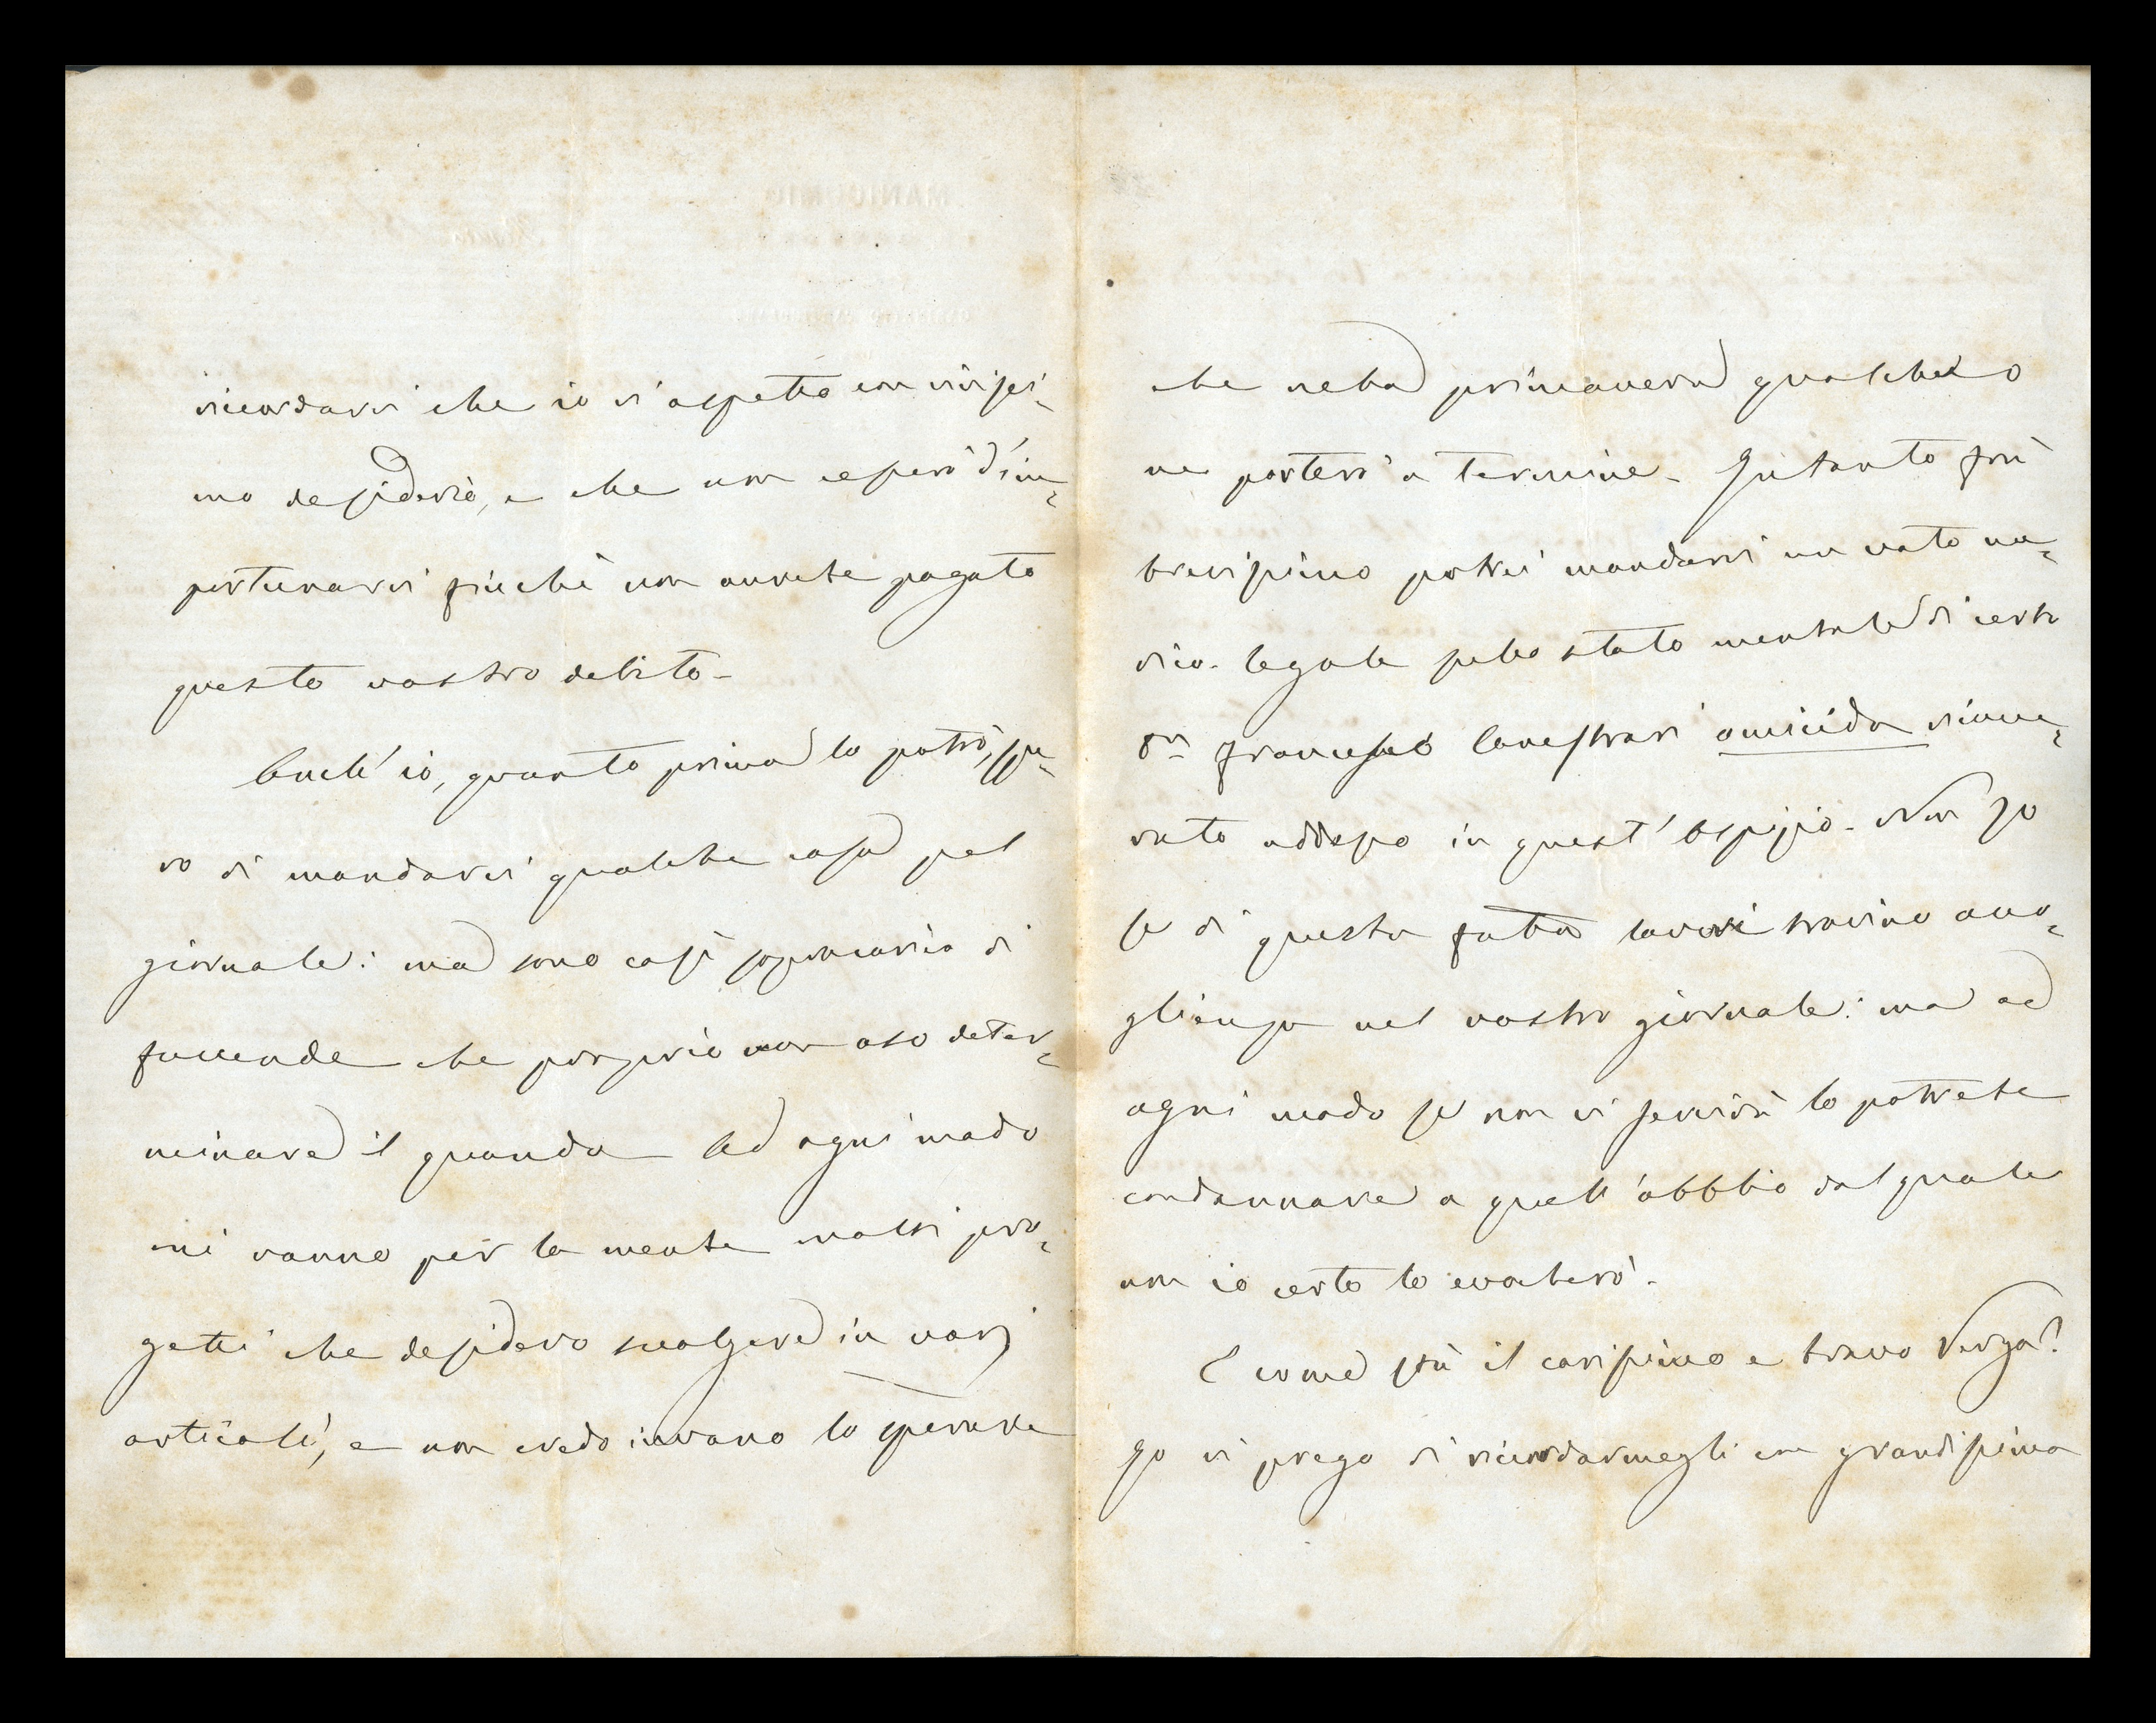 ricordarvi che io vi aspetto con vivissi-
mo desiderio, e che non cesserò d'im-
portunarvi finchè non avrete pagato
questo vostro debito -
Anch'io, quanto prima lo potrò, spe-
ro di mandarvi qualche cosa pel
giornale: ma sono così sopracarico di
faccende che proprio non oso deter-
minare il quando Ad ogni modo
mi vanno per la mente molti pro-
getti che desidero svolgere in varj
articoli, e non credo invano lo sperare
che nella primavera qualched'o
ne porterò a termine - Intanto fra
brevissimo potrei mandarvi un voto me-
dico-legale sullo stato mentale di certo
Francesco Canestrari omicida ricove-
rato adesso in quest'ospizio - Non so
se di questa fatta lavori trovino acco-
glienza nel vostro giornale: ma ad
ogni modo se non vi servirà lo potrete
condannare a quell'obblio dal quale
non io certo lo evocherò -
E come sta il carissimo e bravo Verga?
Io vi prego di ricordarmegli con grandissima
MANICOMIO